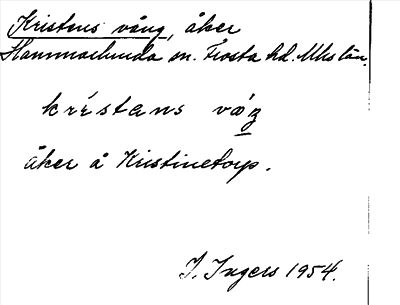 Kristens vång, åker
Hammarlunda sn. Frosta hd. Mhs län.
kristans våŋ
åker å Kristinetorp.
I. Ingers 1954.